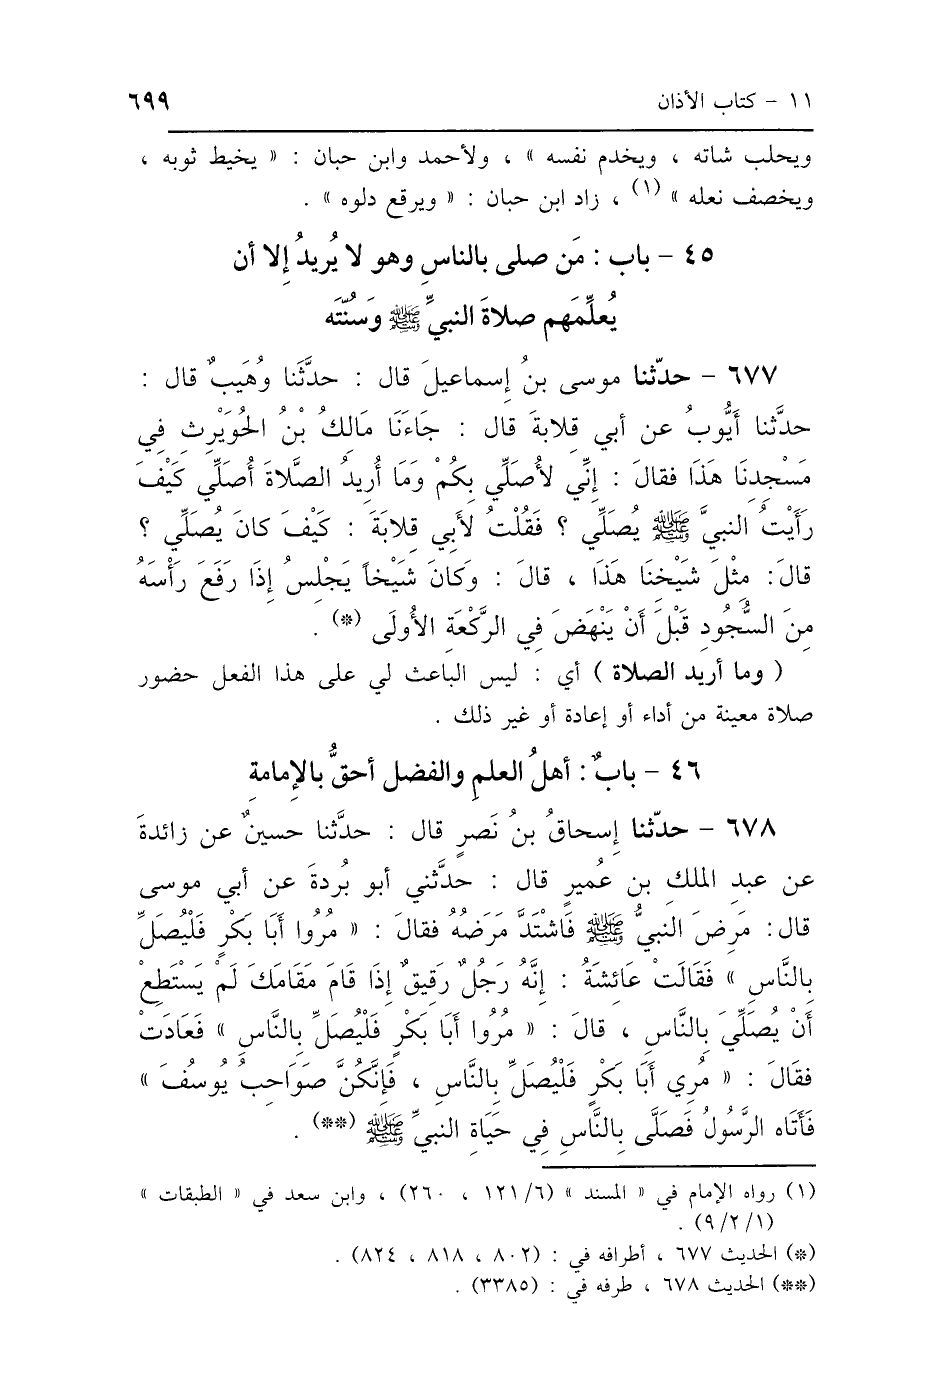 ١١ - كتاب الأذان ٦٩٩
ويحلب شاته ، ويخدم نفسه » ، ولأحمد وابن حبان : « يخيط ثوبه ،
ويخصف نعله » (١) ، زاد ابن حبان : « ويرقع دلوه » .
٤٥ - باب : مَن صلى بالناسِ وهو لا يُريدُ إلا أن
يُعلِّمَهم صلاةَ النبيِّ ﷺ وَسُنَّتَه
٦٧٧ - حدّثنا موسى بنُ إسماعيلَ قال : حدَّثَنا وُهَيبٌ قال :
حدَّثنا أَيُّوبُ عن أبي قلابةَ قال : جَاءَنَا مَالكُ بْنُ الحُوَيْرِثِ فِي
مَسْجِدِنَا هَذَا فقالَ : إنِّي لأُصَلِّي بِكُمْ وَمَا أُرِيدُ الصَّلاةَ أُصَلِّي كَيْفَ
رَأَيْتُ النبيَّ ﷺ يُصَلِّي ؟ فَقُلْتُ لأَبي قِلابَةَ : كَيْفَ كانَ يُصَلِّي ؟
قالَ: مِثْلَ شَيْخِنَا هَذَا ، قالَ : وَكَانَ شَيْخاً يَجْلِسُ إذَا رَفَعَ رَأْسَهُ
مِنَ السُّجُودِ قَبْلَ أَنْ يَنْهَضَ فِي الرَّكْعَةِ الأُولَى (*) .
( وما أريد الصلاة ) أي : ليس الباعث لي على هذا الفعل حضور
صلاة معينة من أداء أو إعادة أو غير ذلك .
٤٦ - بابٌ : أهلُ العلمِ والفضل أحقُّ بالإمامةِ
٦٧٨ - حدّثنا إسحاقُ بنُ نَصرٍ قال : حدَّثنا حسينٌ عن زائدةَ
عن عبدِ الملكِ بن عُميرٍ قال : حدَّثني أبو بُردةَ عن أبي موسى
قال: مَرِضَ النبيُّ ﷺ فَاشْتَدَّ مَرَضُهُ فقالَ : « مُرُوا أَبَا بَكْرٍ فَلْيُصَلِّ
بالنَّاسِ » فَقَالَتْ عَائشَةُ : إنَّهُ رَجُلٌ رَقِيقٌ إذَا قَامَ مَقَامَكَ لَمْ يَسْتَطِعْ
أَنْ يُصَلِّيَ بِالنَّاسِ ، قالَ : « مُرُوا أَبَا بَكْرٍ فَلْيُصَلِّ بِالنَّاسِ » فَعَادَتْ
فقَالَ : « مُرِي أَبَا بَكْرٍ فَلْيُصَلِّ بِالنَّاسِ ، فَإنَّكُنَّ صَوَاحِبُ يُوسُفَ »
فَأَتَاه الرَّسُولُ فَصَلَّى بِالنَّاسِ فِي حَيَاةِ النبيِّ ﷺ (**) .
(١) رواه الإمام في « المسند » (٦/ ١٢١ ، ٢٦٠) ، وابن سعد في « الطبقات »
(١/ ٢/ ٩) .
(*) الحديث ٦٧٧ ، أطرافه في : (٨٠٢ ، ٨١٨ ، ٨٢٤) .
(**) الحديث ٦٧٨ ، طرفه في : (٣٣٨٥) .